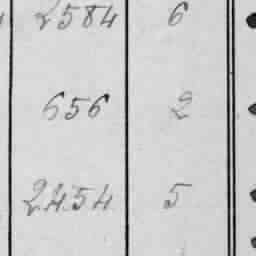 2584 6
656 2
2454 5